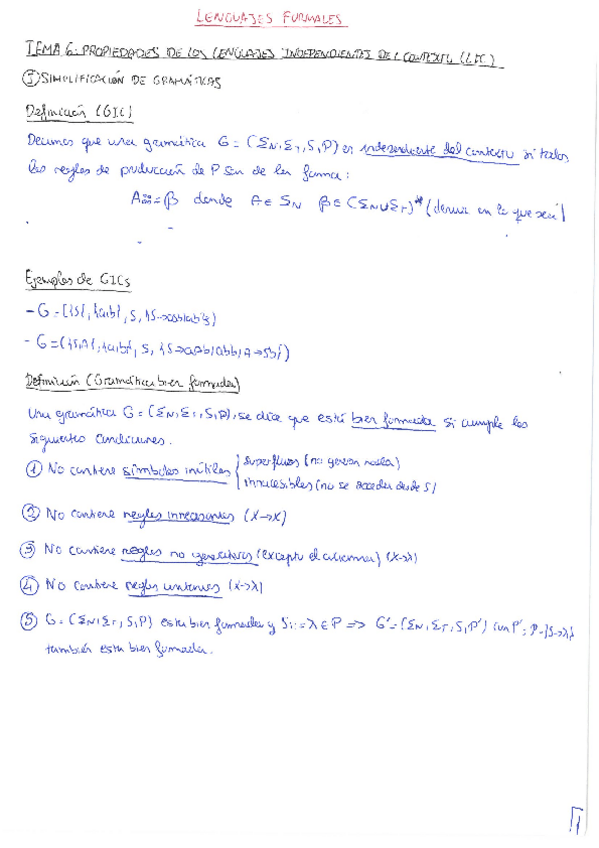 LENGUAJES FORMALES
TEMA 6: PROPIEDADES DE LOS LENGUAJES INDEPENDIENTES DEL CONTEXTO (LIC)
① SIMPLIFICACIÓN DE GRAMÁTICAS
Definición (GIC)
Decimos que una gramática G = (ΣN, ΣT, S, P) es independiente del contexto si todas
las reglas de producción de P son de la forma:
A::=β donde A ∈ ΣN β ∈ (ΣN∪ΣT)* (deriva en lo que sea)
Ejemplos de GICs
- G = ({S}, {a,b}, S, {S→aSb|ab})
- G = ({S,A}, {a,b}, S, {S→aAb|abb, A→Sb})
Definición (Gramática bien formada)
Una gramática G = (ΣN, ΣT, S, P), se dice que está bien formada si cumple las
siguientes condiciones.
① No contiene símbolos inútiles { superfluos (no generan nada)
inaccesibles (no se acceden desde S)
② No contiene reglas innecesarias (X→X)
③ No contiene reglas no generativas (excepto el axioma) (X→λ)
④ No contiene reglas unitarias (X→
⑤ G = (ΣN, ΣT, S, P) está bien formada y S::=λ ∈ P => G' = (ΣN, ΣT, S, P') con P' = P-{S→λ}
también está bien formada.
1